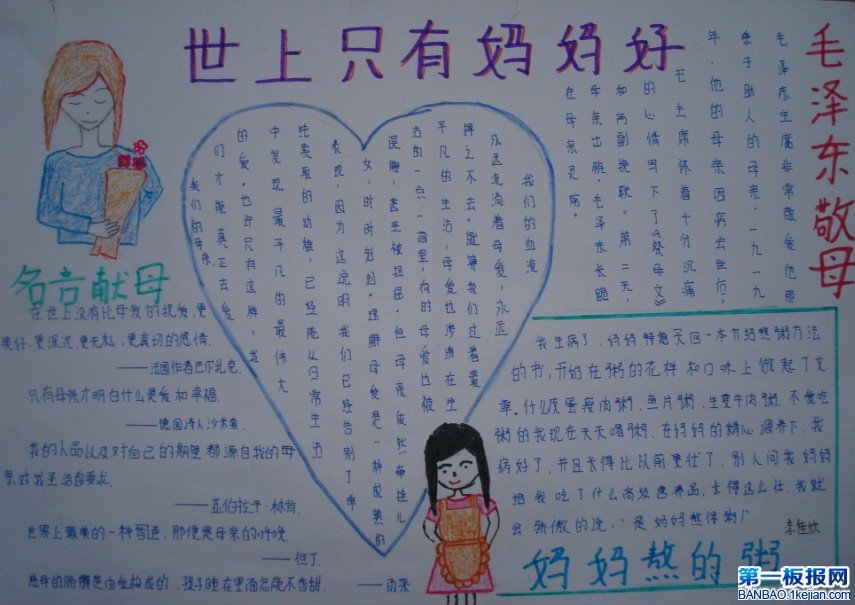 世上只有妈妈好
毛泽东敬母
毛泽东主席非常敬爱他那
乐于助人的母亲,一九一九
年,他的母亲因病去世后,
毛主席怀着十分沉痛
的心情写下了《祭母文》
和两副挽联。第二天,
母亲出殡,毛泽东长跪
在母亲
我们的血液
永远流淌着母爱,永远
挥之不去。就算我们过着最
平凡的生活,母爱也渗透在生
活的一点一滴里,有时母爱也被
误解,甚至被扭屈。但母亲依然牵挂儿
女,时时刻刻。理解母爱是一种成熟的
表现,因为这说明我们已经告别了单
纯索取的幼稚,已经能从日常生活
中发现最平凡的最伟大
的爱。也许只有这样,我
们才能真正去爱
我们的母亲。
名言献母
在世上没有比母爱的抚慰,更
美好,更深沉,更无私,更真切的感情.
——法国作者巴尔扎克.
只有母亲才明白什么是爱和幸福.
——德国诗人沙米索.
我的人品以及对自己的期望都源自我的母
亲对我圣洁自要求.
——亚伯拉罕·林肯.
世界上最美的一种声音,那便是母亲的呼唤.
——但丁.
慈母的胳膊是由爱构成的,孩子睡在里面怎能不香甜.
——雨果
我生病了,妈妈特意买回一本介绍熬粥方法
的书,开始在粥的花样和口味上做起了文
章.什么皮蛋瘦肉粥.鱼片粥,生菜牛肉粥.不爱吃
粥的我现在天天喝粥.在妈妈的精心调养下.我
病好了,并且长得比以前更壮了.别人问我妈妈
给我吃了什么高级营养品,长得这么壮,我就
会骄傲的说:“是妈妈熬得粥!”
李佳欣
妈妈熬的粥
第一板报网
BANBAO.1kejian.COM